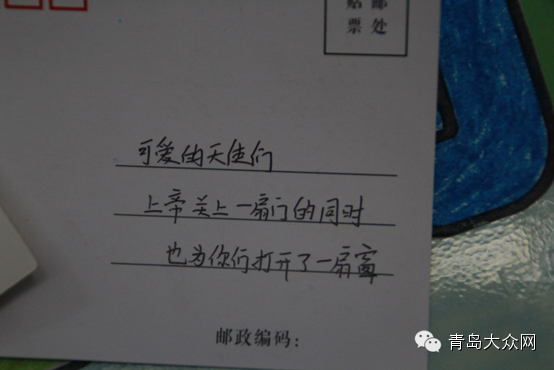 贴邮
票处
可爱的天使们
上帝关上一扇门的同时
也为你们打开了一扇窗
邮政编码：
青岛大众网